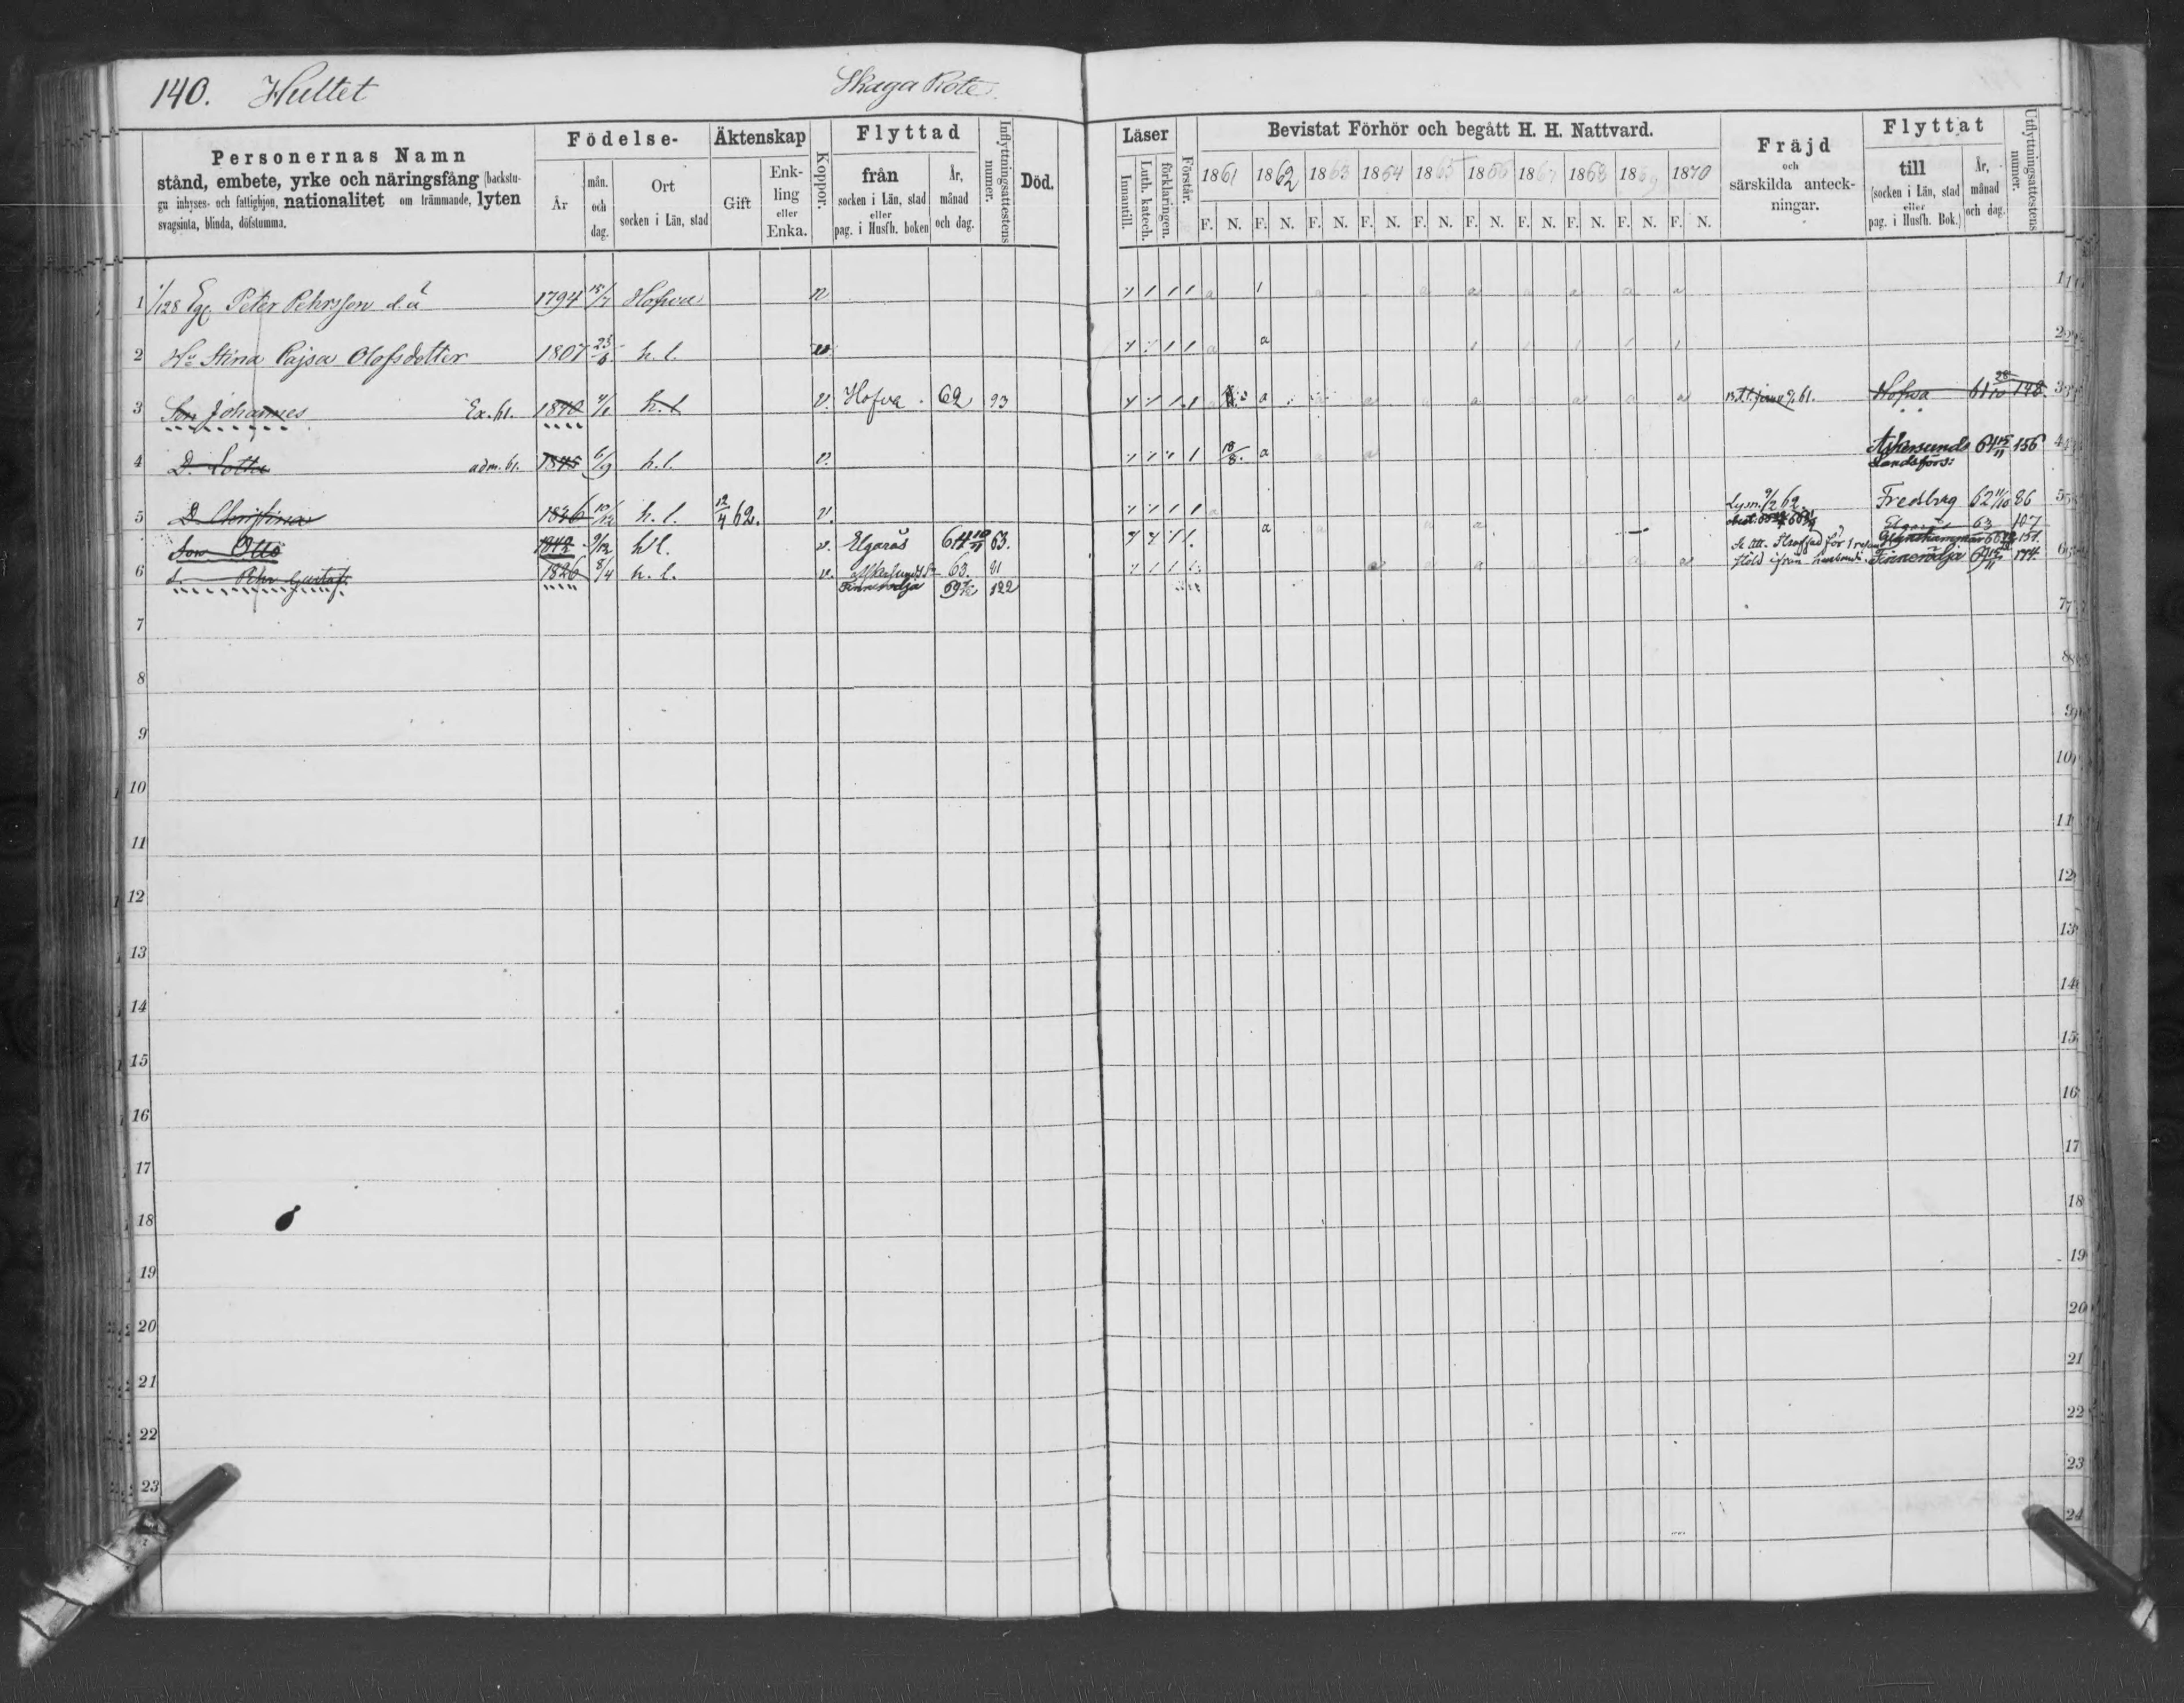 140. Hultet Skaga Rote.
Personernas Namn
stånd, embete, yrke och näringsfång (backstu-
gu inhyses- och fattighjon, nationalitet om främmande, lyten
svagsinta, blinda, döfstumma.
Födelse-
År
mån. och dag.
Ort
socken i Län, stad
Äktenskap
Gift
Enk-
ling
eller
Enka.
Koppor.
Flyttad
från
socken i Län, stad
eller
pag. i Husfh. boken
År,
månad
och dag.
Inflyttningsattestens
numer.
Död.
Läser
Innantill.
Luth. katech.
förklaringen.
Förstår.
Bevistat Förhör och begått H. H. Nattvard.
1861 1862 1863 1864 1865 1866 1867 1868 1869 1870
F. N. F. N. F. N. F. N. F. N. F. N. F. N. F. N. F. N. F. N.
Fräjd
och
särskilda anteck-
ningar.
Flyttat
till
(socken i Län, stad
eller
pag. i Husfh. Bok.)
År,
månad
och dag.
Utflyttningsattestens
numer.
1 1/128 Eg. Peter Pehrsson d.ä 1794 18/7 Hofva v 1
2 Hu Stina Cajsa Olofsdotter 1807 23/6 h.l. v a 2
3 Son Johannes Ex. 61. 1840 h.l v. Hofva 62 93 a Hofva 61 28/10 148. 3
4 D. Lotta adm. 61. 1845 6/9 h.l. v. 18/8. a Askersunds 64 15/11 156 4
Landsförs:
5 D. Christina 1836 10/12 h.l. 12/4 62. v. Lysn. 9/2 62. Fredbrg 62 11/10 86 5
Elgarås 63 107
Son Otto 1842 9/12 h.l. v. Elgarås 64 10/11 63. a Glanshammar 151.
6 s. Pehr Gustaf. 1826 8/4 h.l. v. Askersunds 63. 81 Se Att. Straffad för 1 resan
stöld Finnerödja 69 15/11 174. 6
Finnerödja 69 122
7 7
8 8
9 9
10 10
11 11
12 12
13 13
14 14
15 15
16 16
17 17
18 18
19 19
20 20
21 21
22 22
23 23
24